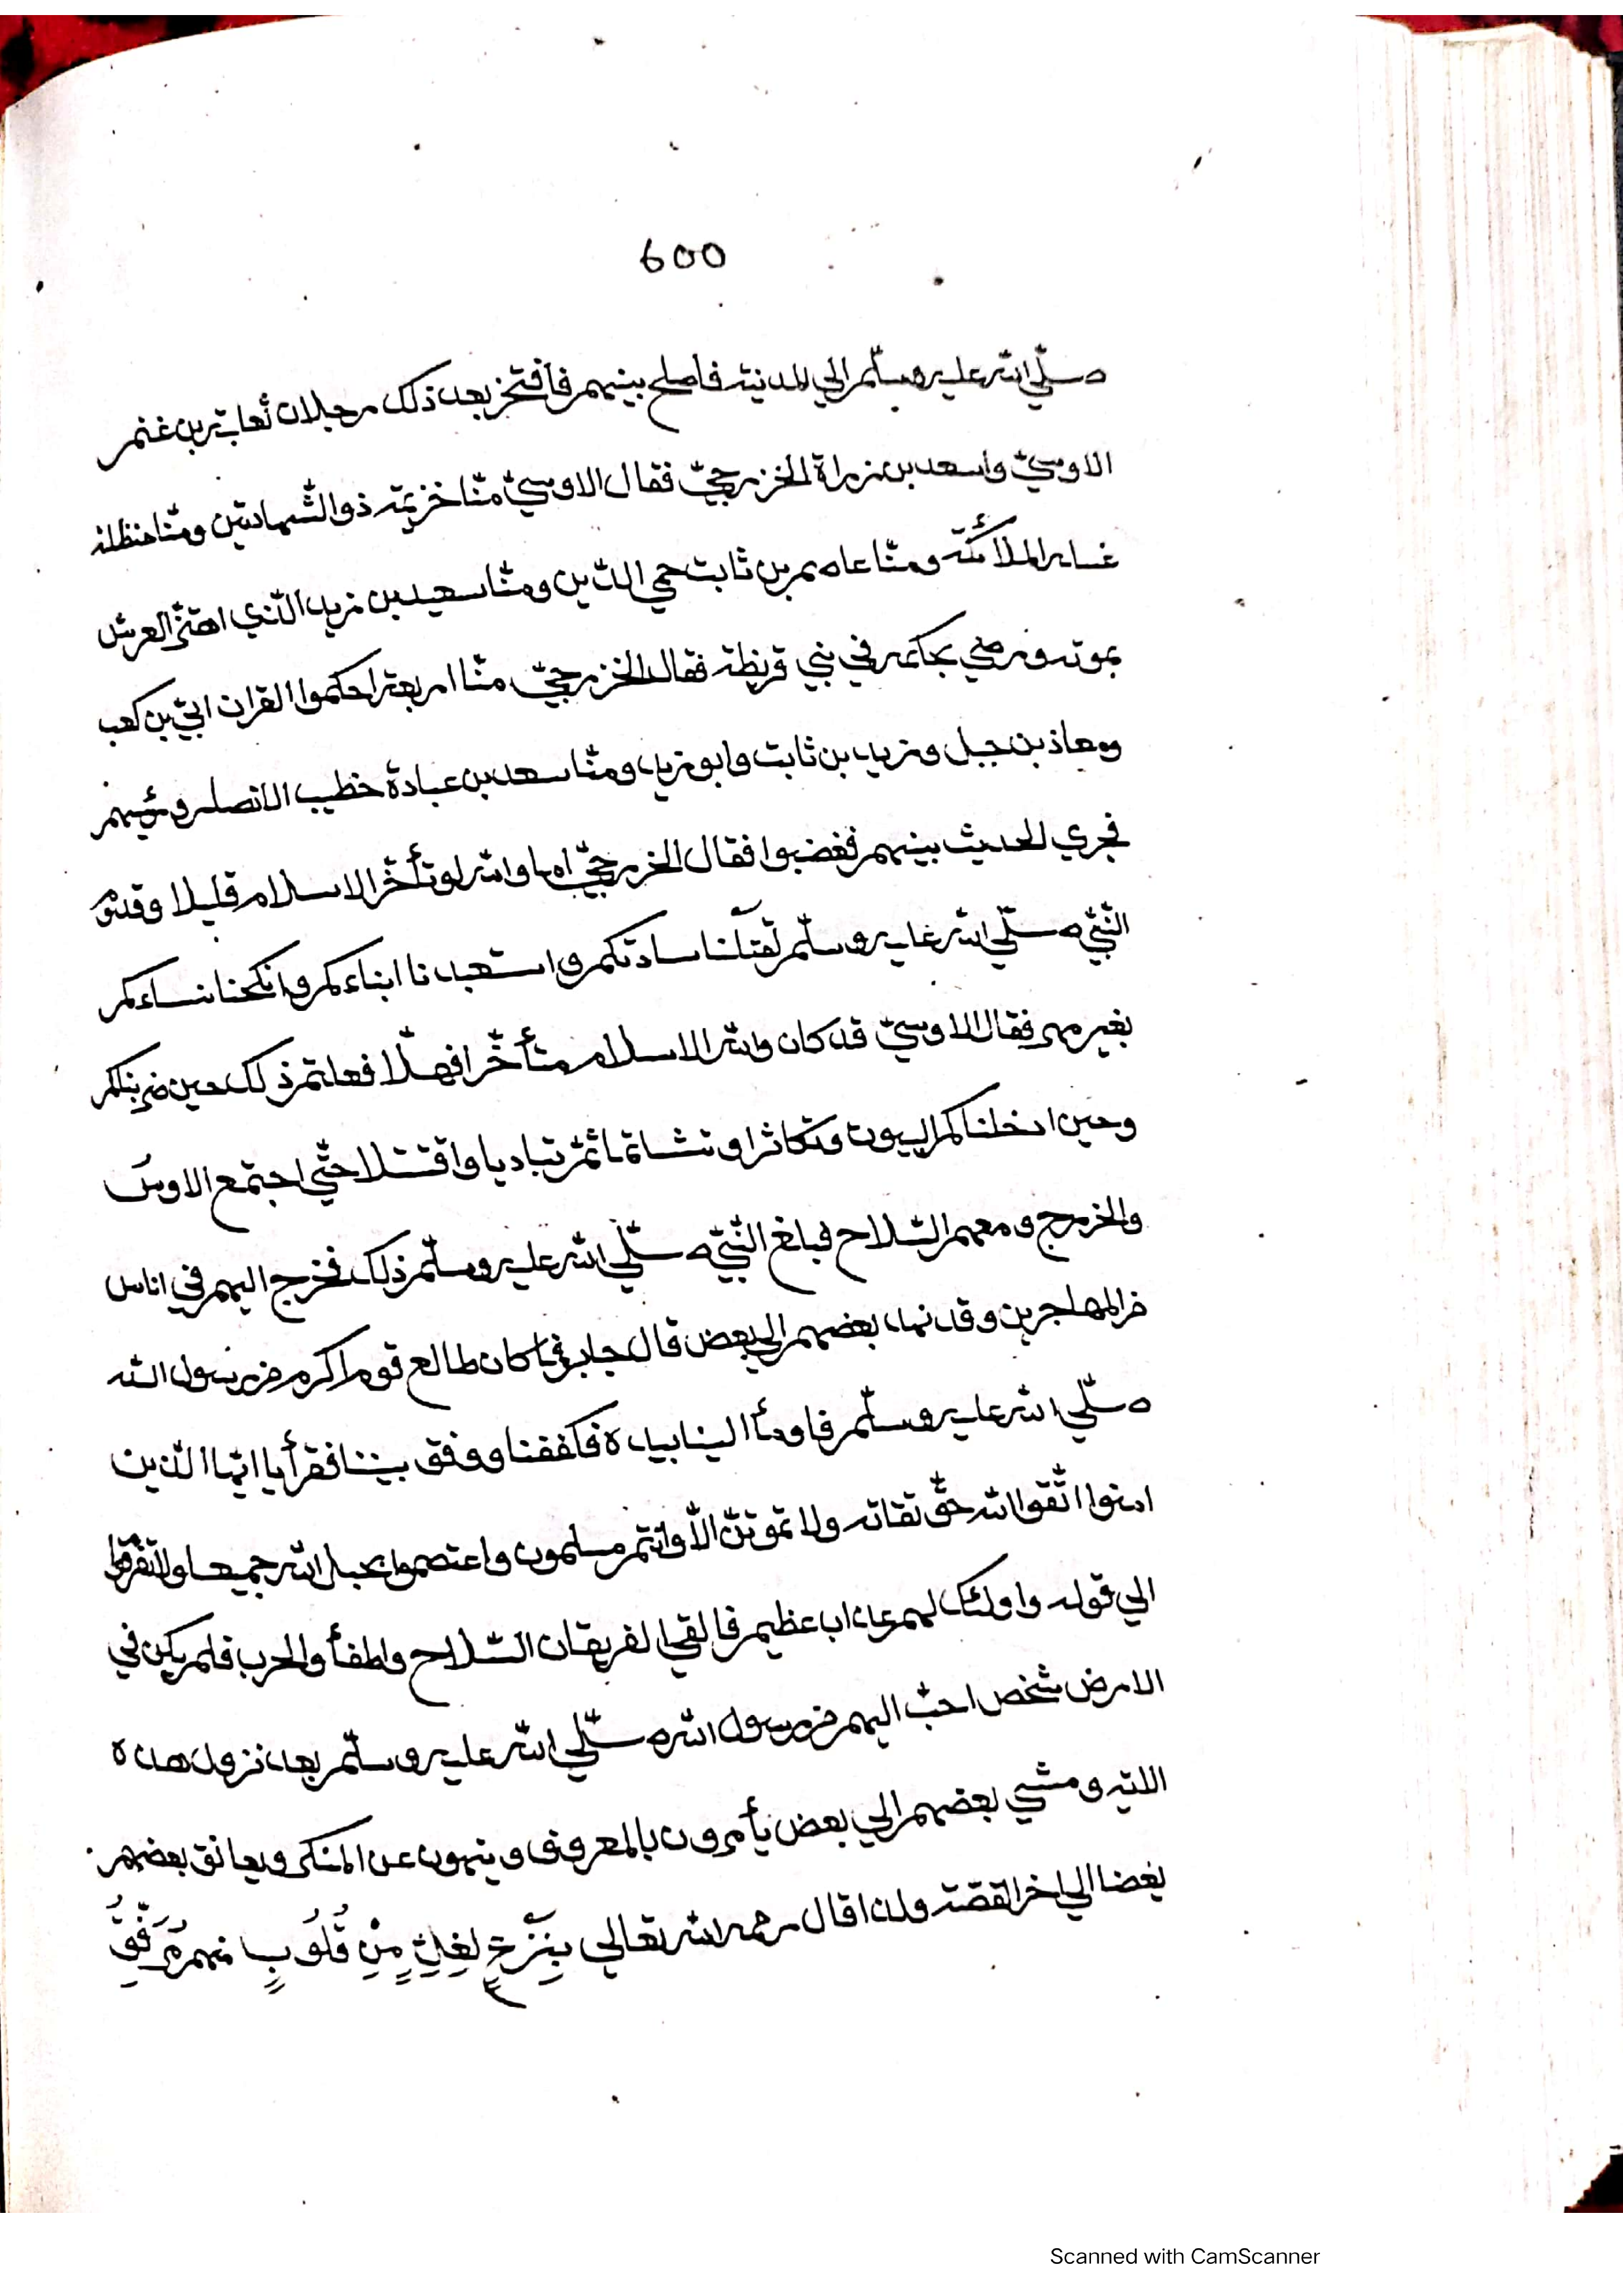 600
صلّي اللّه عليه وسلّم الي المدينة فاصلح بينهم فافتخر بعد ذلك رجلان ثعلبة بن غنم
الاوسيّ واسعد بن زرارة الخزرجيّ فقال الاوسيّ منّا خزيمة ذو الشّهادتين ومنّا حنظلة
غسله الملأئكة ومنّا عاصم بن ثابت حمي الدّين ومنّا سعيد بن زيد الّذي اهتزّ العرش
بموته ورضي بحكمه في بني قريظة فقال الخزرجيّ منّا اربعة احكموا القران ابيّ بن كعب
ومعاذ بن جبل وزيد بن ثابت وابو زيد ومنّا سعد بن عبادة خطيب الانصار ورئيسهم
فجري الحديث بينهم فغضبوا فقال الخزرجيّ اما واللّه لو تأخّر الاسلام قليلا وقدوم
النّبيّ صلّي اللّه عليه وسلّم لقتلنا سادتكم واستعبدنا ابناءكم وانكحنا نساءكم
بغير مهر فقال الاوسيّ قد كان واللّه الاسلام متأخّرا فهلّا فعلتم ذلك حين ضربنكم
وحين ادخلناكم البيوت وتكاثرا وتشاتما ثمّ تباديا واقتتلا حتّي اجتمع الاوس
والخزرج ومعهم السّلاح فبلغ النّبيّ صلّي اللّه عليه وسلّم ذلك فخرج اليهم في اناس
من المهاجرين وقد نهد بعضهم الي بعض قال جابر فما كان طالع قوم اكرم من رسول الله
صلّي اللّه عليه وسلّم فاومأ الينا بيده فكففنا ووفق بيننا فقرأ يا ايّها الّذين
امنوا اتّقوا اللّه حقّ تقاته ولا تموتنّ الّا وانتم مسلمون واعتصموا بحبل اللّه جميعا ولا تفرّقوا
الي قوله واولئك لهم عذاب عظيم فالقي الفريقان السّلاح واطفأوا الحرب فلم يكن في
الارض شخص احبّ اليهم من رسول اللّه صلّي اللّه عليه وسلّم بعد نزول هذه
اللاية ومشي بعضهم الي بعض يأمرون بالمعروف وينهون عن المنكر ويعانق بعضهم
بعضا الي اخر القصّة ولذا قال رحمه اللّه تعالي بِنَزْحٍ لِغِلٍّ مِنْ قُلُوبٍ
Scanned with CamScanner